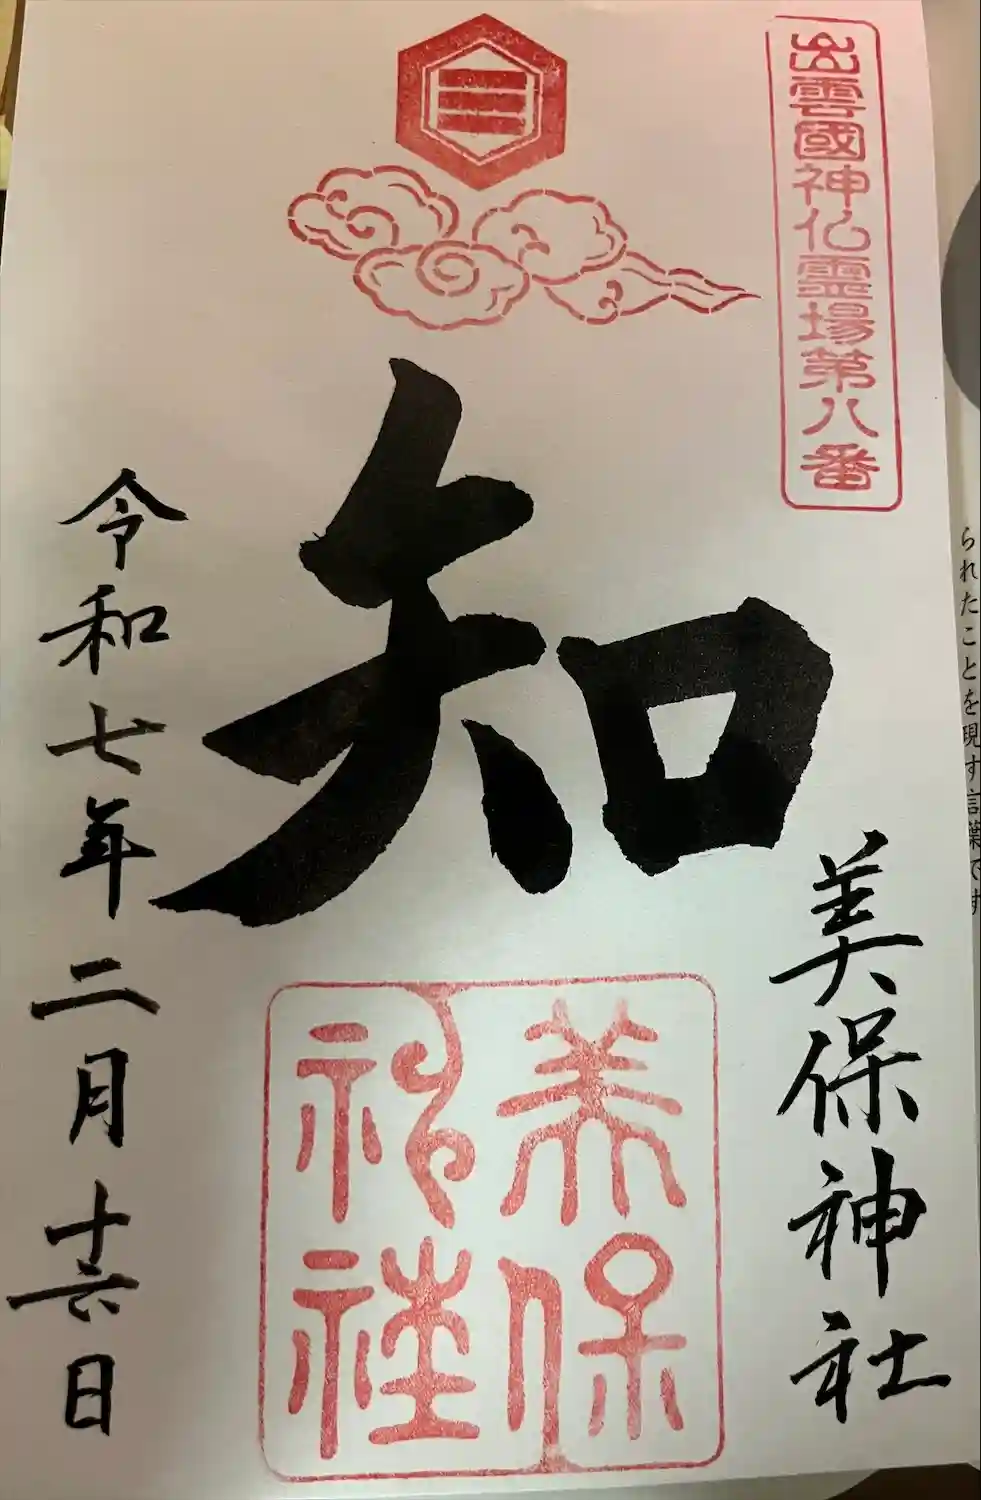 出雲國神仏霊場第八番
知
美保神社
美保
神社
令和七年二月十六日
られたことを現す言葉です